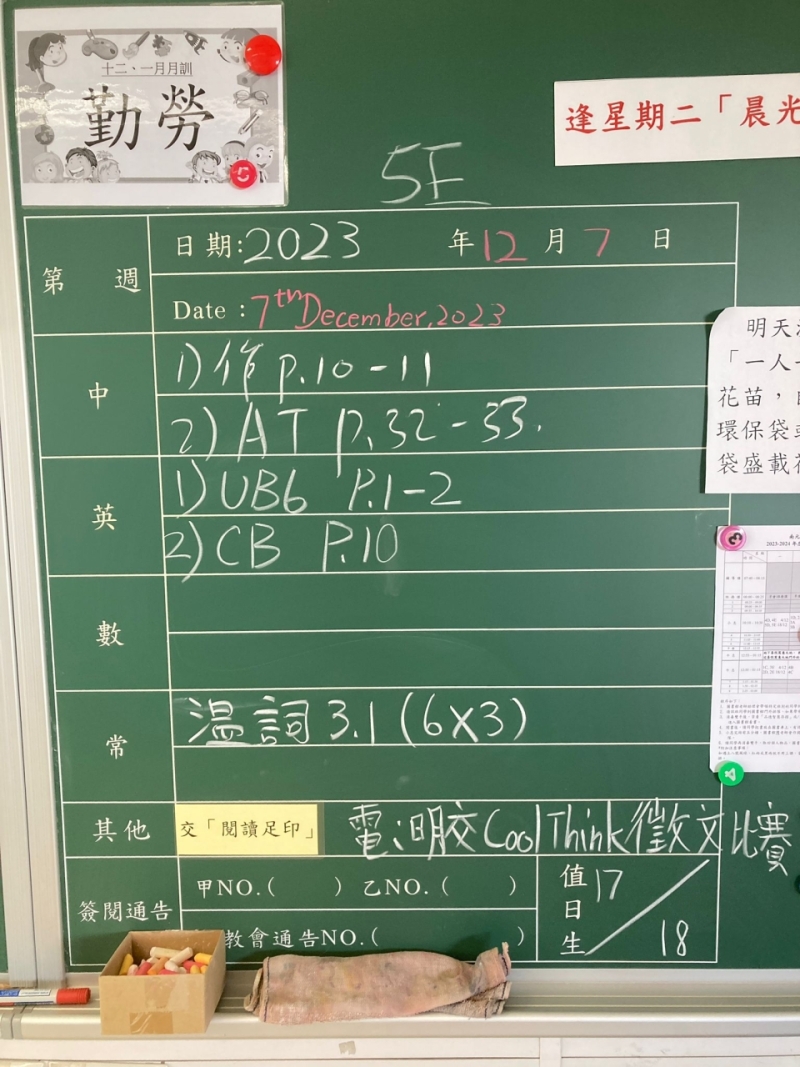 十二、一月月訓
勤勞
逢星期二「晨光
5E
第 週
日期:2023 年 12 月 7 日
Date : 7th December, 2023
中
1) 作 p.10-11
2) AT p.32-33.
英
1) UB6 P.1-2
2) CB P.10
數
常
溫詞 3.1 (6X3)
其他
交「閱讀足印」
電:明交 CoolThink 徵文比賽
簽閱通告
甲NO.( ) 乙NO.( )
教會通告NO.( )
值日生 17 / 18
明天
「一人一
花苗,
環保袋或
袋盛載花